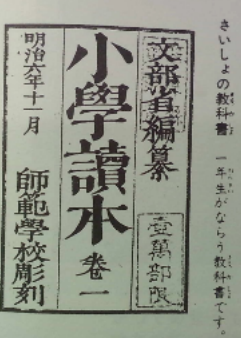 さいしょの教科書 一年生がならう教科書です。
文部省編纂 壹萬部限
小學讀本 卷一
明治六年十一月 師範學校彫刻